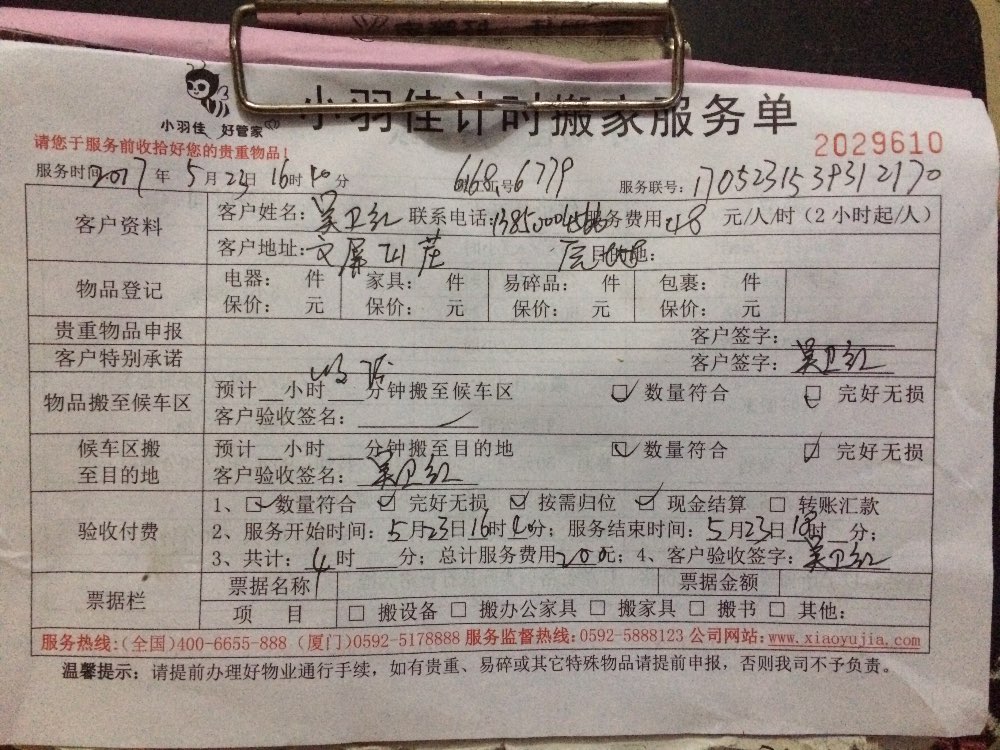 小羽佳 好管家
小羽佳计时搬家服务单
请您于服务前收拾好您的贵重物品!
2029610
服务时间 2017 年 5 月 23 日 16 时 40 分 668 号 6779 服务联号: 1705231539312170
客户资料
客户姓名: 吴卫红 联系电话: 服务费用: 48 元/人/时 (2 小时起/人)
客户地址: 文屏山庄 目的地:
物品登记
电器: 件 家具: 件 易碎品: 件 包裹: 件
保价: 元 保价: 元 保价: 元 保价: 元
贵重物品申报 客户签字:
客户特别承诺 客户签字: 吴卫红
物品搬至候车区
预计 小时 分钟搬至候车区 数量符合 完好无损
客户验收签名:
候车区搬至目的地
预计 小时 分钟搬至目的地 数量符合 完好无损
客户验收签名: 吴卫红
验收付费
1、 数量符合 完好无损 按需归位 现金结算 转账汇款
2、服务开始时间: 5 月 23 日 16 时 40 分; 服务结束时间: 5 月 23 日 18 时 分;
3、共计: 4 时 分; 总计服务费用 200 元; 4、客户验收签字: 吴卫红
票据栏
票据名称 票据金额
项 目 搬设备 搬办公家具 搬家具 搬书 其他:
服务热线:(全国)400-6655-888 (厦门)0592-5178888 服务监督热线:0592-5888123 公司网站:www.xiaoyujia.com
温馨提示: 请提前办理好物业通行手续, 如有贵重、易碎或其它特殊物品请提前申报, 否则我司不予负责。